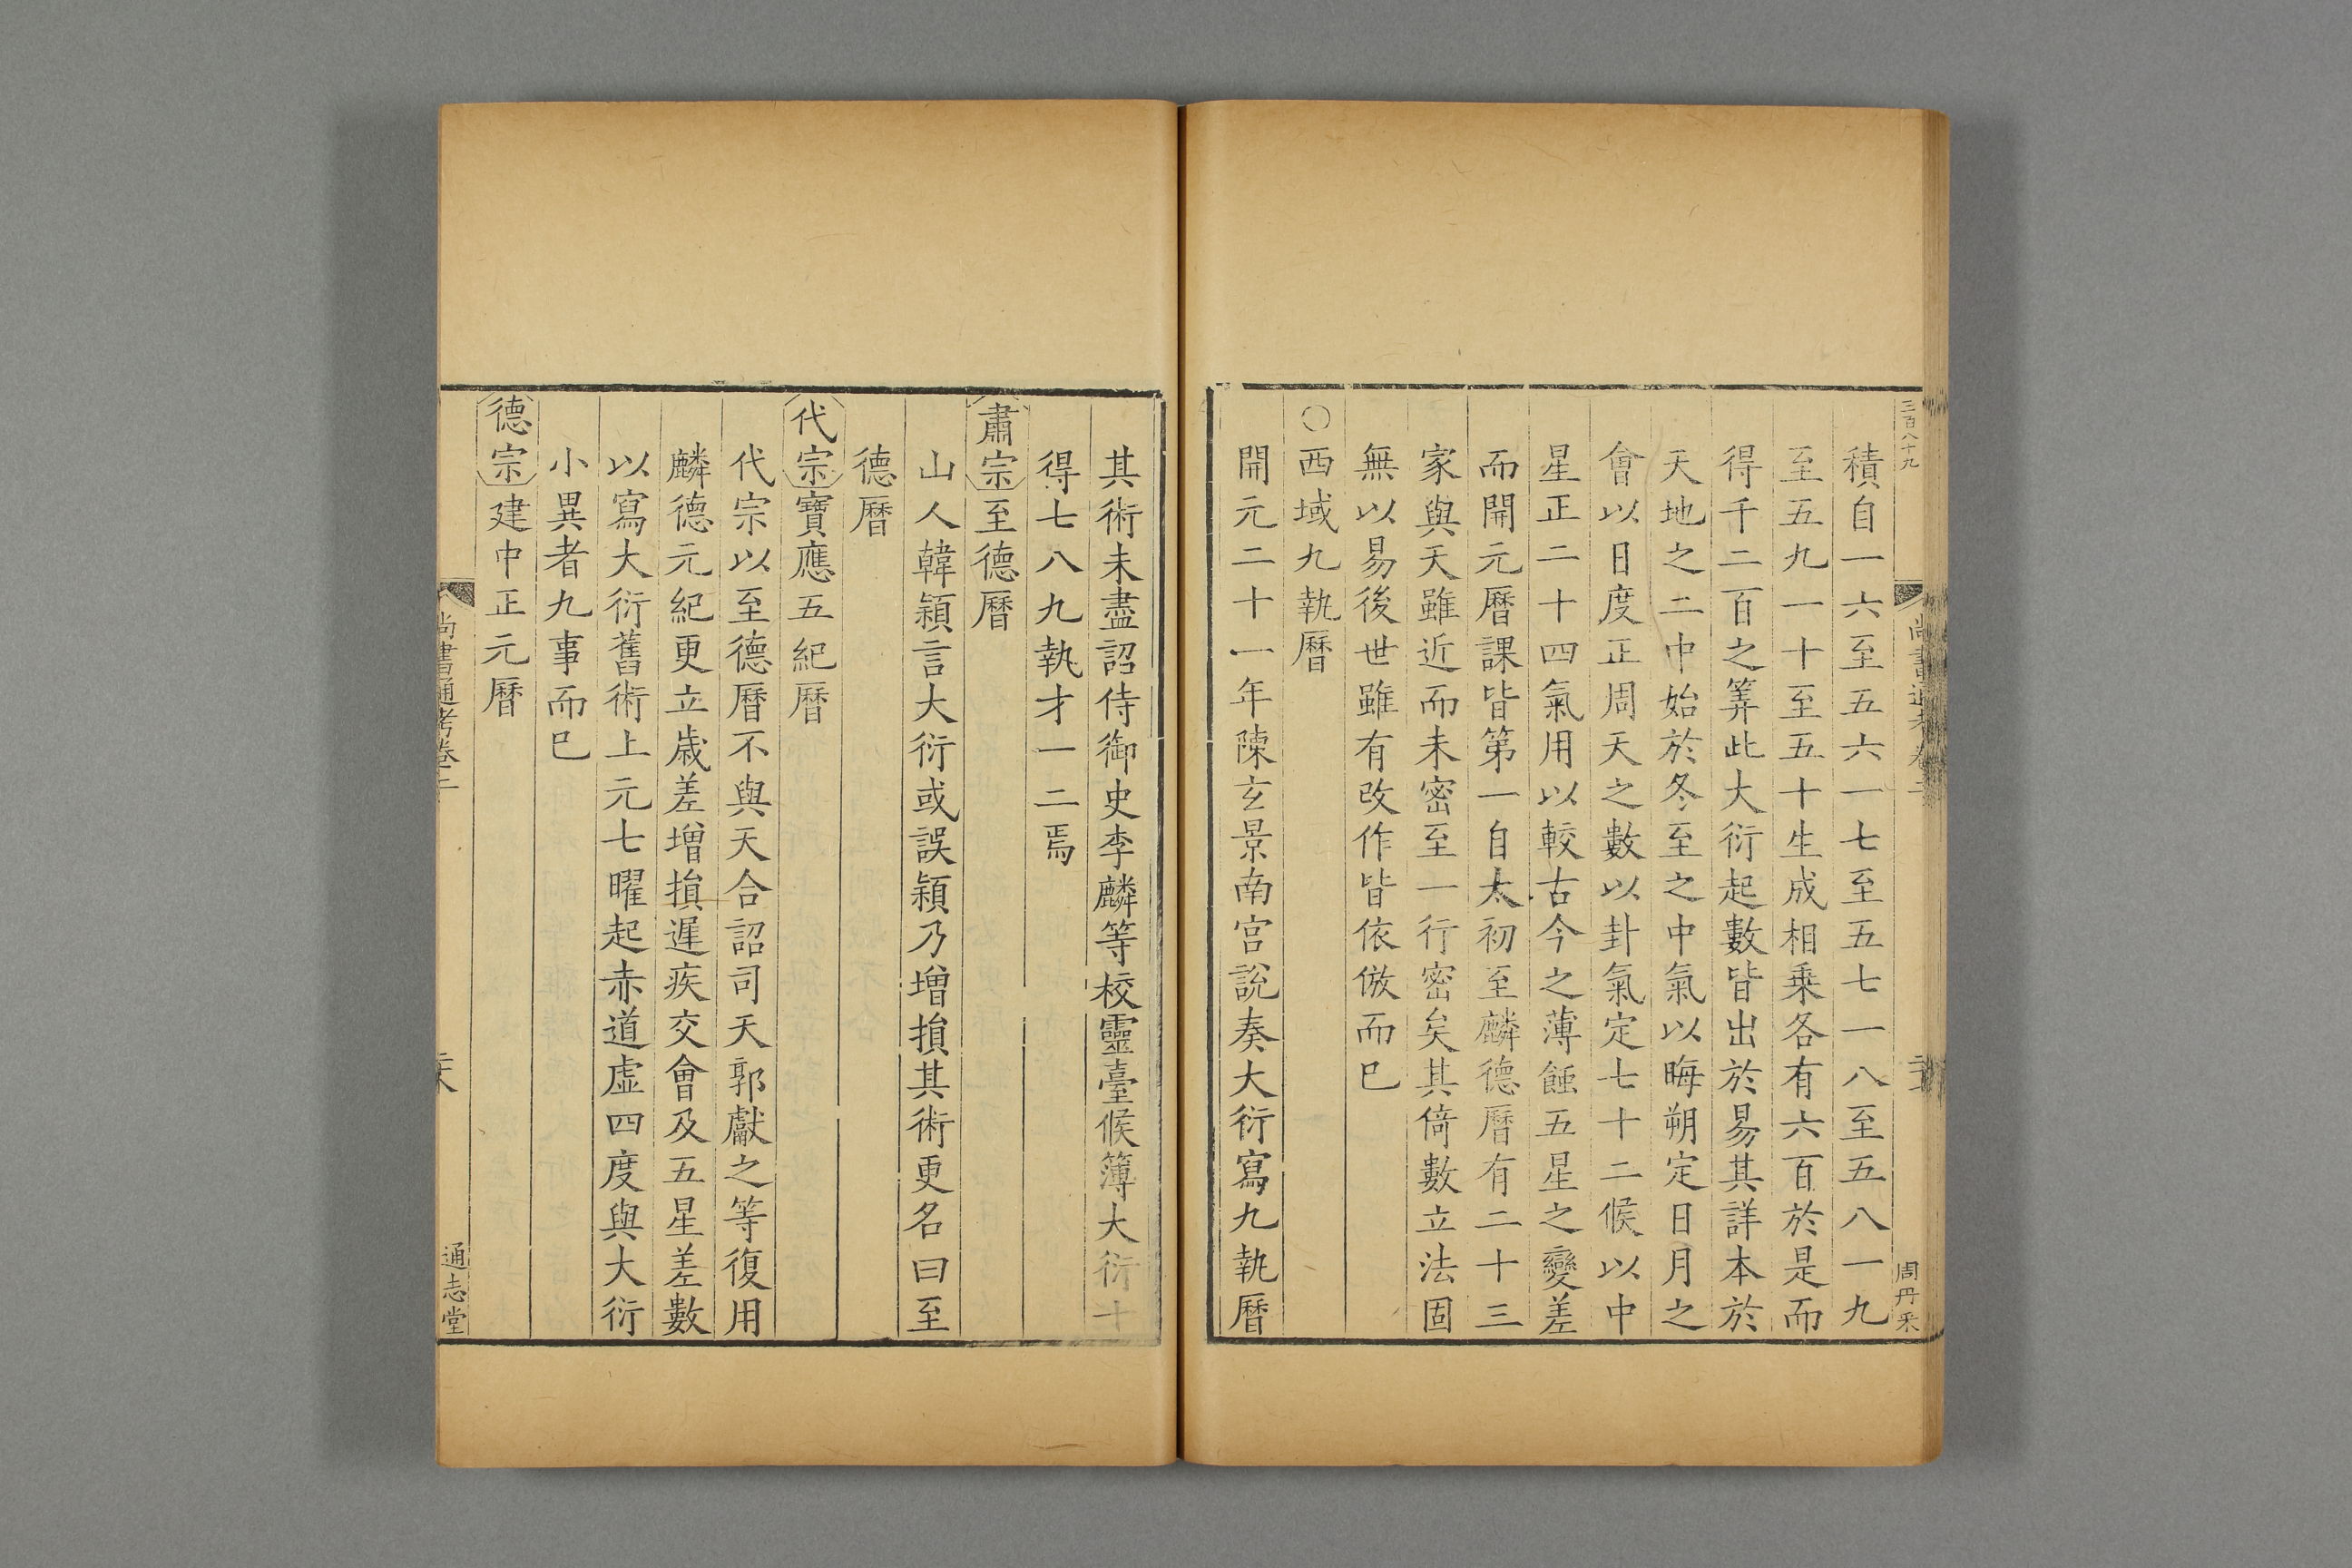 三百八十九
積自一六至五六一七至五七一八至五八一九
至五九一十至五十生成相乗各有六百於是而
得千二百之筭此大衍起數皆出於易其詳本於
天地之二中始於冬至之中氣以晦朔定日月之
會以日度正周天之數以卦氣定七十二候以中
星正二十四氣用以較古今之薄蝕五星之變差
而開元暦課皆第一自太初至麟德暦有二十三
家與天雖近而未密至一行密矣其倚數立法固
無以易後世雖有改作皆依倣而巳
○西域九執暦
開元二十一年陳玄景南宫說奏大衍寫九執暦
周丹采
其術未盡詔侍御史李麟等校靈臺候簿大衍十
得七八九執才一二焉
肅宗至德暦
山人韓穎言大衍或誤穎乃增損其術更名曰至
德暦
代宗寶應五紀暦
代宗以至德暦不與天合詔司天郭獻之等復用
麟德元紀更立歲差增損遲疾交會及五星差數
以寫大衍舊術上元七曜起赤道虛四度與大衍
小異者九事而巳
德宗建中正元暦
尚書通考卷二
通志堂